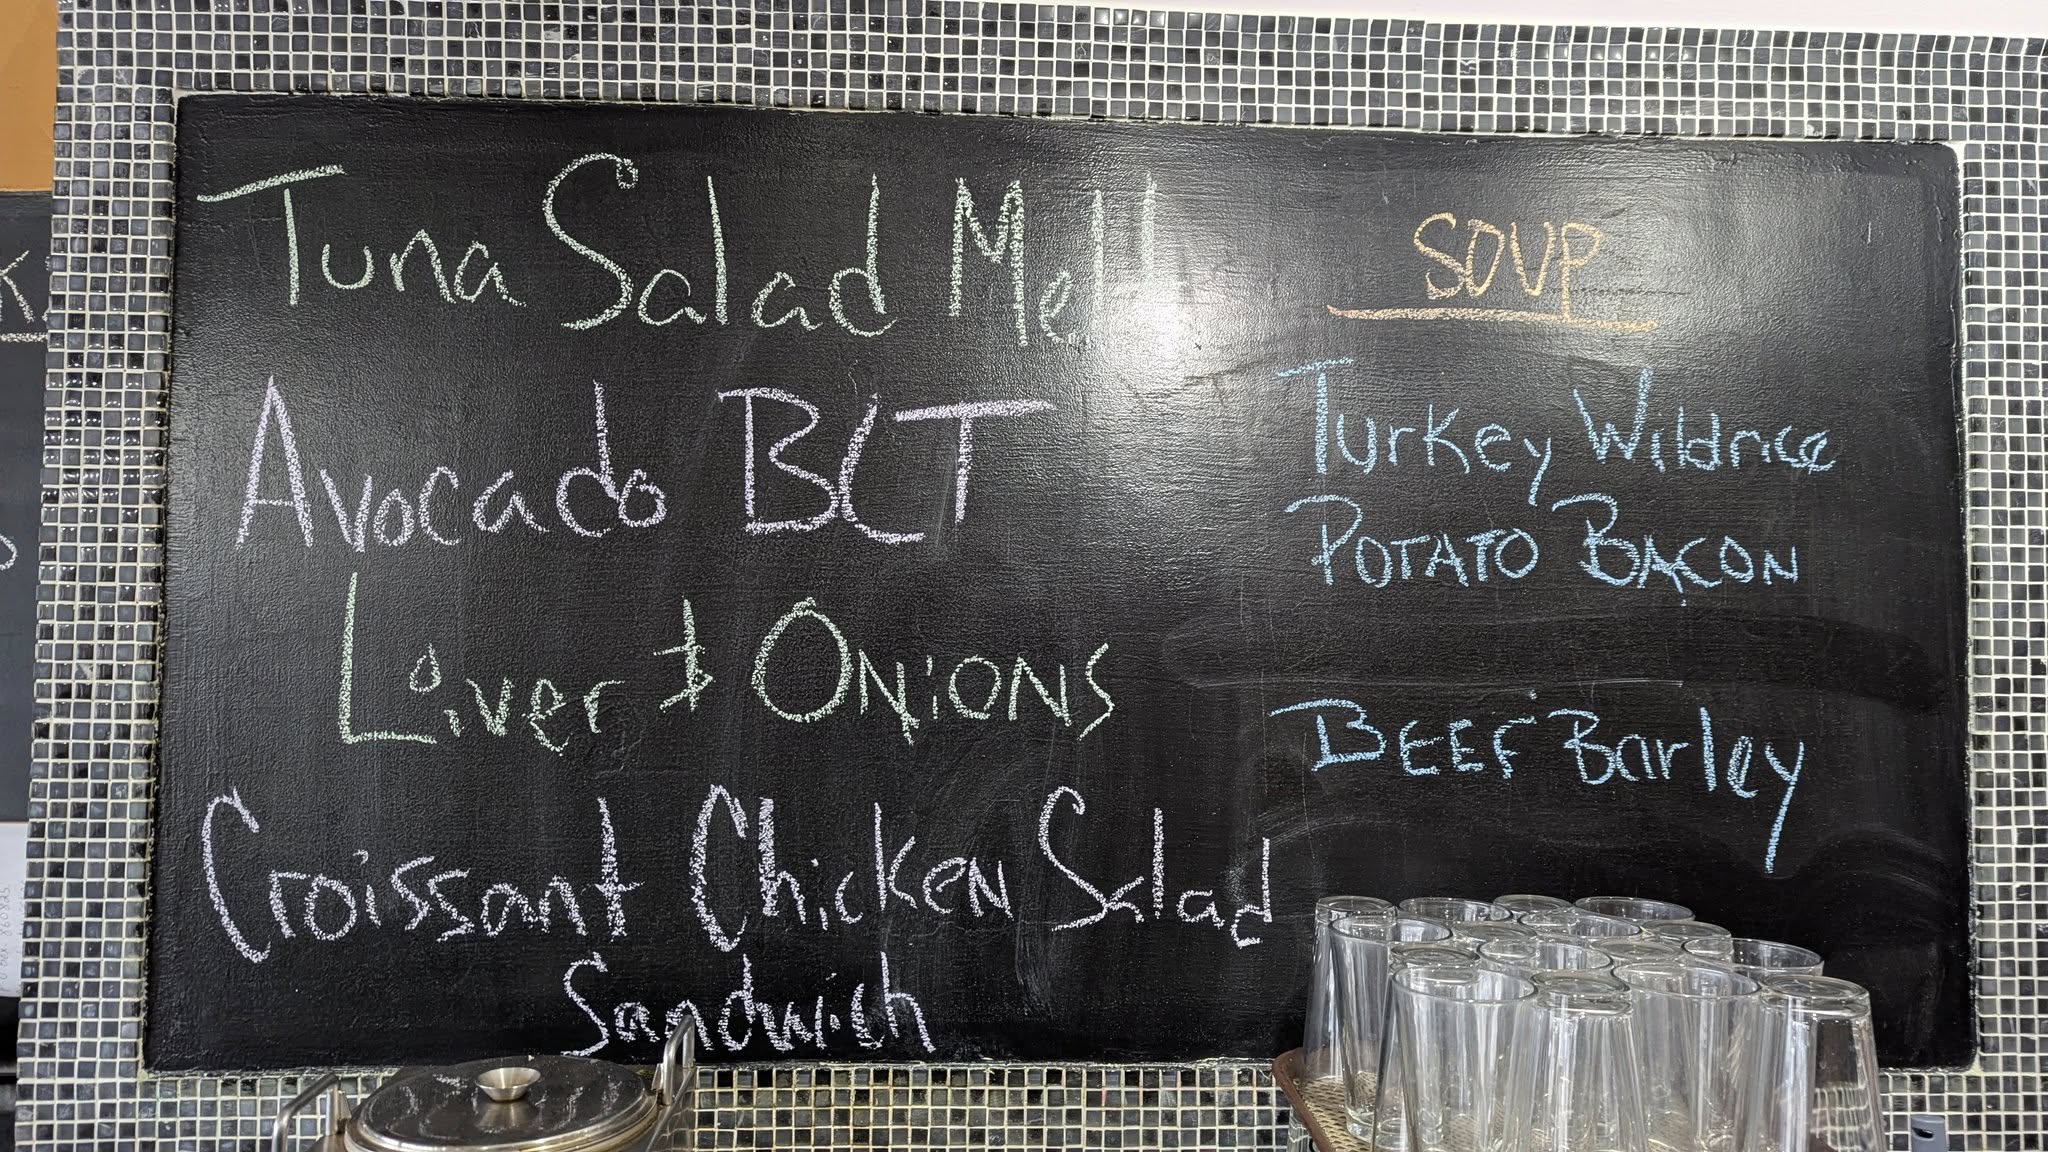 Tuna Salad Melt
Avocado BLT
Liver & Onions
Croissant Chicken Salad
Sandwich
SOUP
Turkey Wildrice
POTATO BACON
BEEF Barley